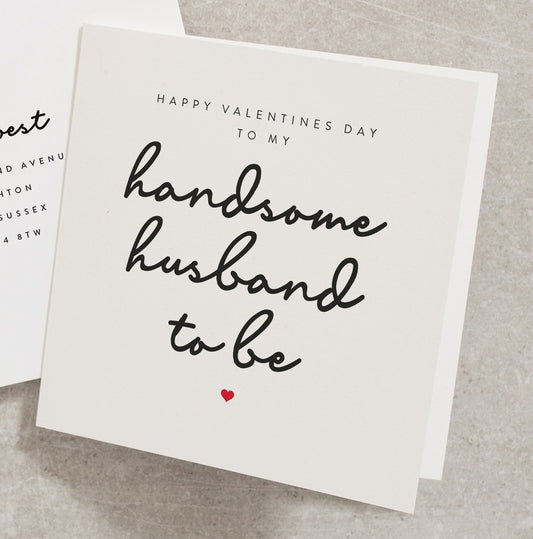 HAPPY VALENTINES DAY
TO MY
handsome
husband
to be
HTON
SUSSEX
4 8TW